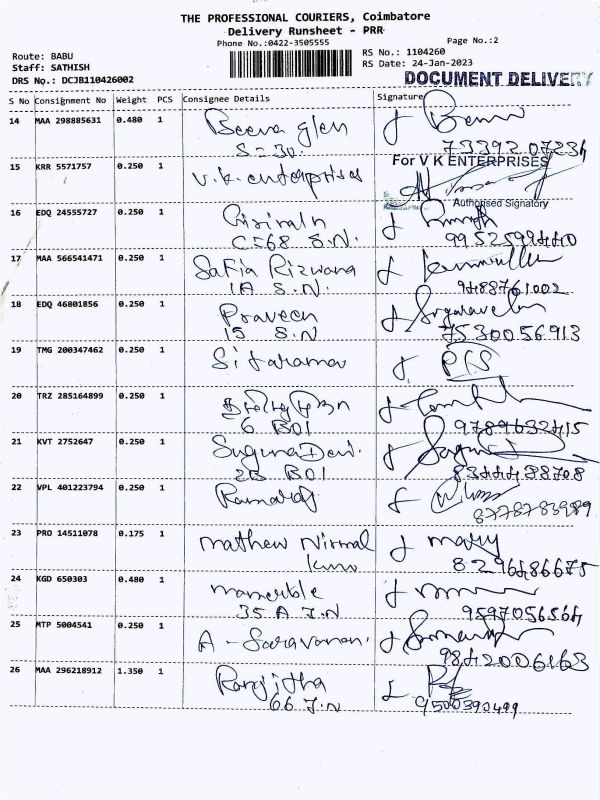 THE PROFESSIONAL COURIERS, Coimbatore
Delivery Runsheet - PRR
Phone No.:0422-3505555
Page No.:2
Route: BABU
RS No.: 1104260
Staff: SATHISH
RS Date: 24-Jan-2023
DRS No.: DCJB110426002
DOCUMENT DELIVERY
S No Consignment No Weight PCS Consignee Details Signature
14 MAA 298885631 0.480 1 Beena glen
S-30.
7339207234
15 KRR 5571757 0.250 1 V.K. enterprises
For V K ENTERPRISES
Authorised Signatory
16 EDQ 24555727 0.250 1
C568 S.N.
17 MAA 566541471 0.250 1 Safia Rizwana
1A S.N.
9488761002
18 EDQ 46801856 0.250 1 Praveen
15 S.N
7530056913
19 TMG 200347462 0.250 1 Sitaraman
20 TRZ 285164899 0.250 1
6 B01
9789632415
21 KVT 2752647 0.250 1 Suguna Devi.
2B B01
8344438708
22 VPL 401223794 0.250 1
8778783989
23 PRO 14511078 0.175 1 Mathew Nirmal mary
8296486675
24 KGD 650303 0.480 1
35 A J.N
25 MTP 5004541 0.250 1 A - Saravanan.
9842006163
26 MAA 296218912 1.350 1 Ranjitha
66 J.N
9500390499